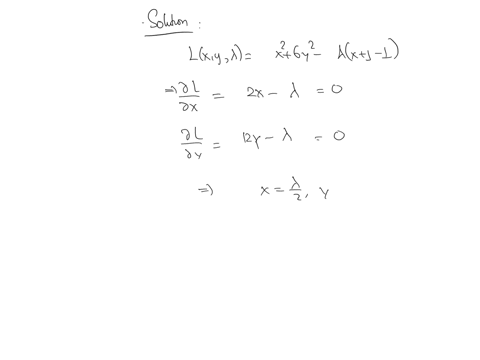 Solution:
L(x,y,λ) = x²+6y² - λ(x+y-1)
⇒ ∂L/∂x = 2x - λ = 0
∂L/∂y = 12y - λ = 0
⇒ x = λ/2, y